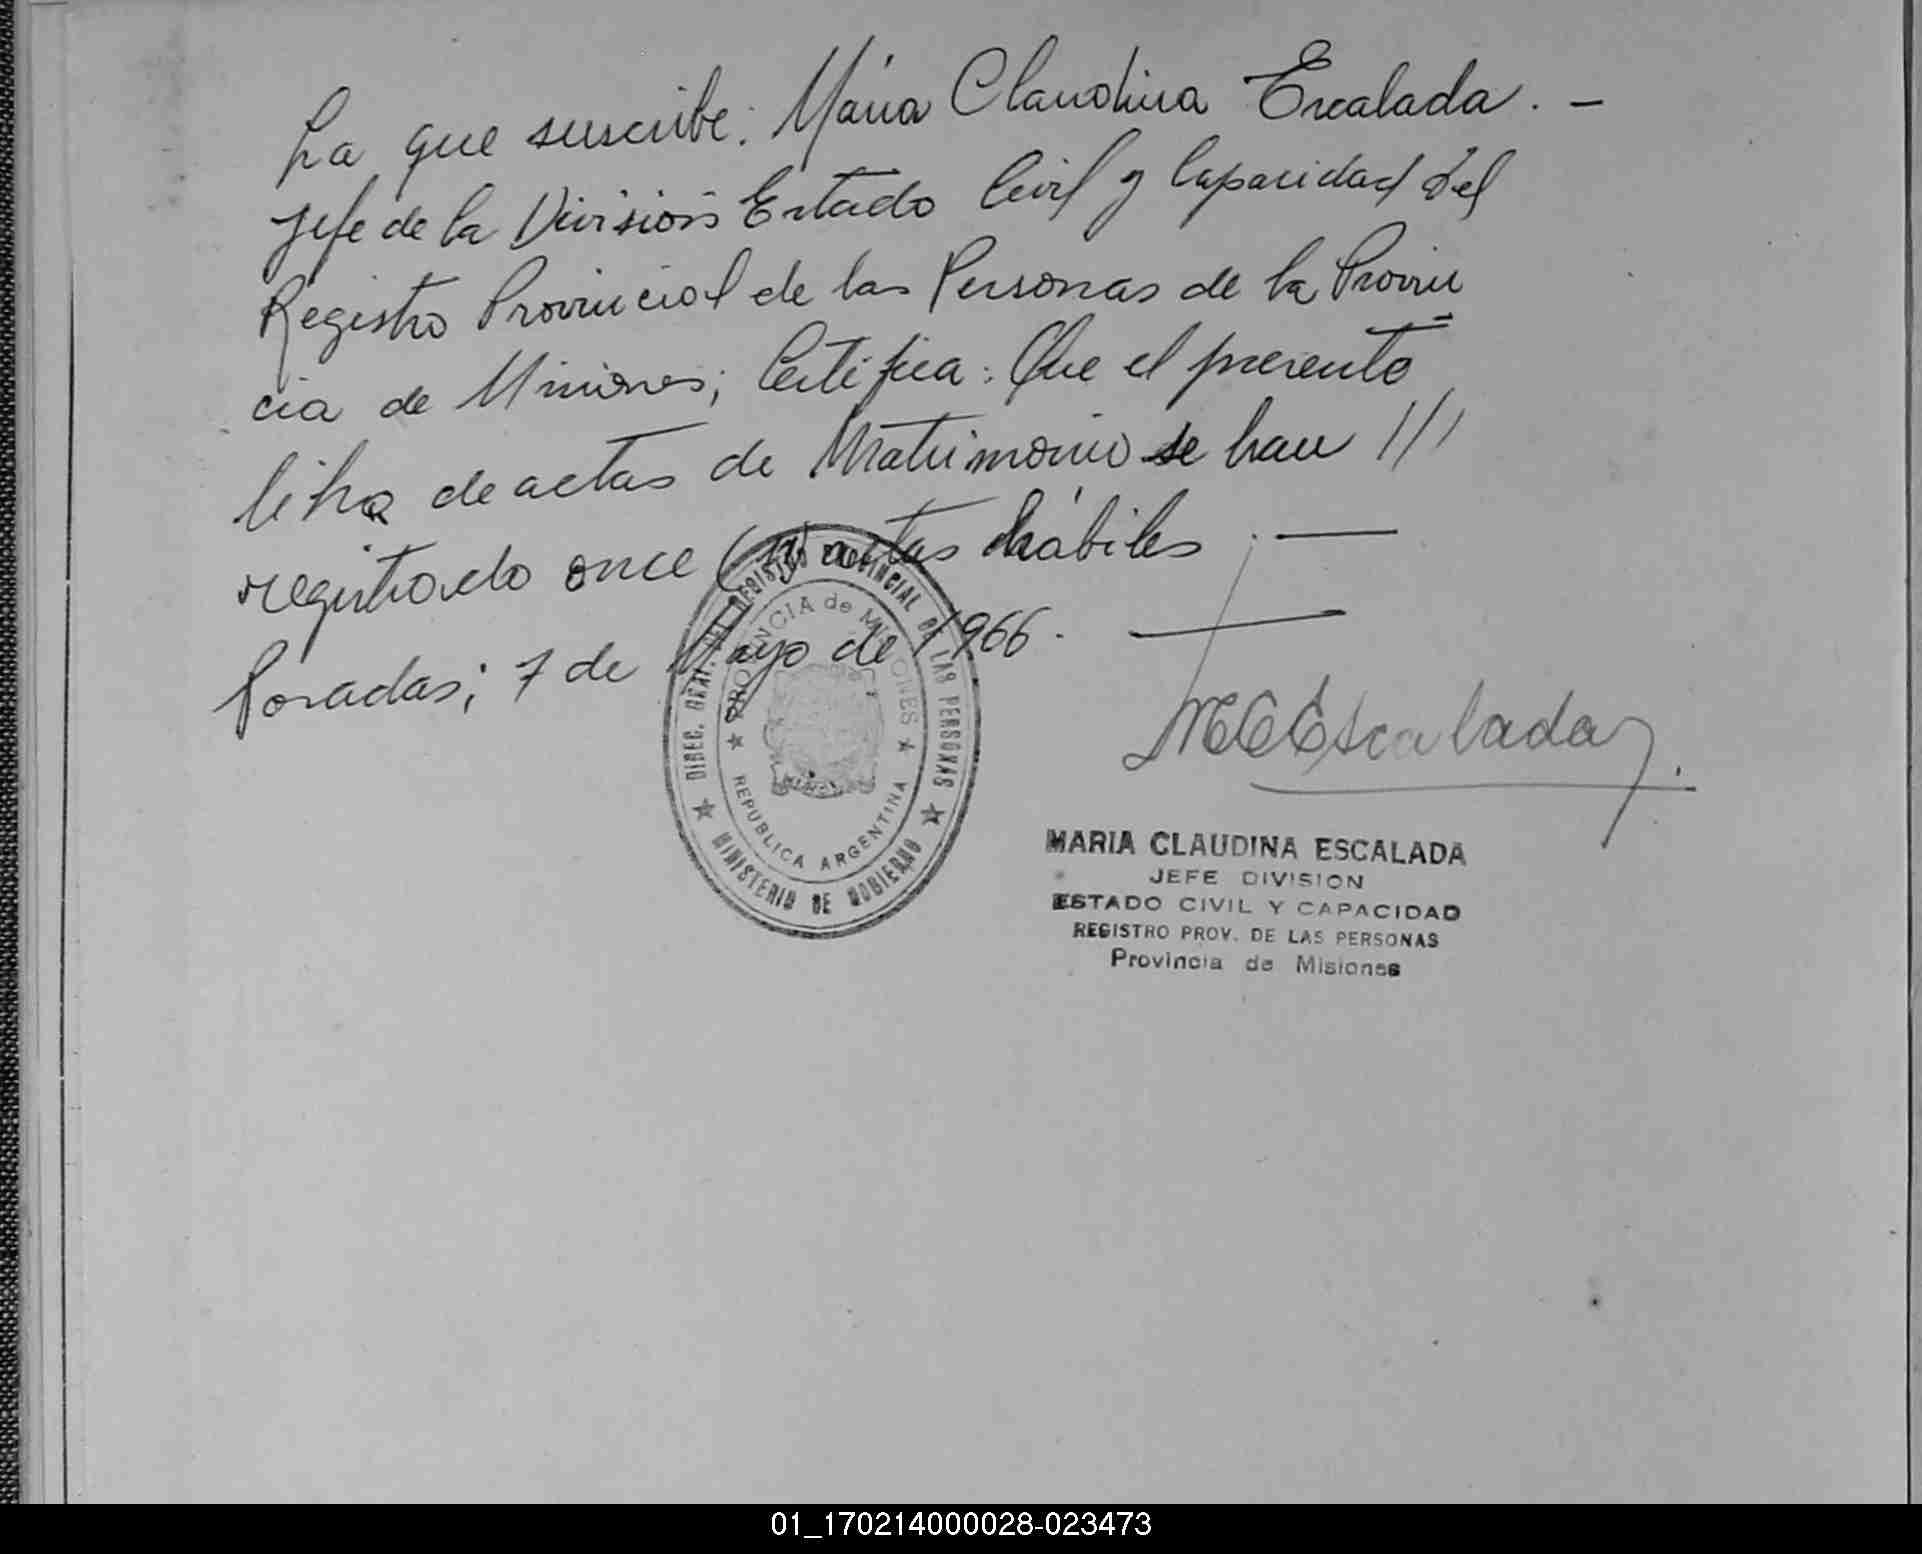 La que suscribe: María Claudina Escalada. –
Jefe de la División Estado Civil y Capacidad del
Registro Provincial de las Personas de la Provin
cia de Misiones; Certifica: Que el presente
libro de actas de Matrimonio se han ///
registrado once (11) actas hábiles. —
Posadas; 7 de Mayo de 1966. —
DIREC. GRAL. DEL REGISTRO PROVINCIAL DE LAS PERSONAS
PROVINCIA de MISIONES
REPUBLICA ARGENTINA
MINISTERIO DE GOBIERNO
MCEscalada
MARIA CLAUDINA ESCALADA
JEFE DIVISION
ESTADO CIVIL Y CAPACIDAD
REGISTRO PROV. DE LAS PERSONAS
Provincia de Misiones
01_170214000028-023473